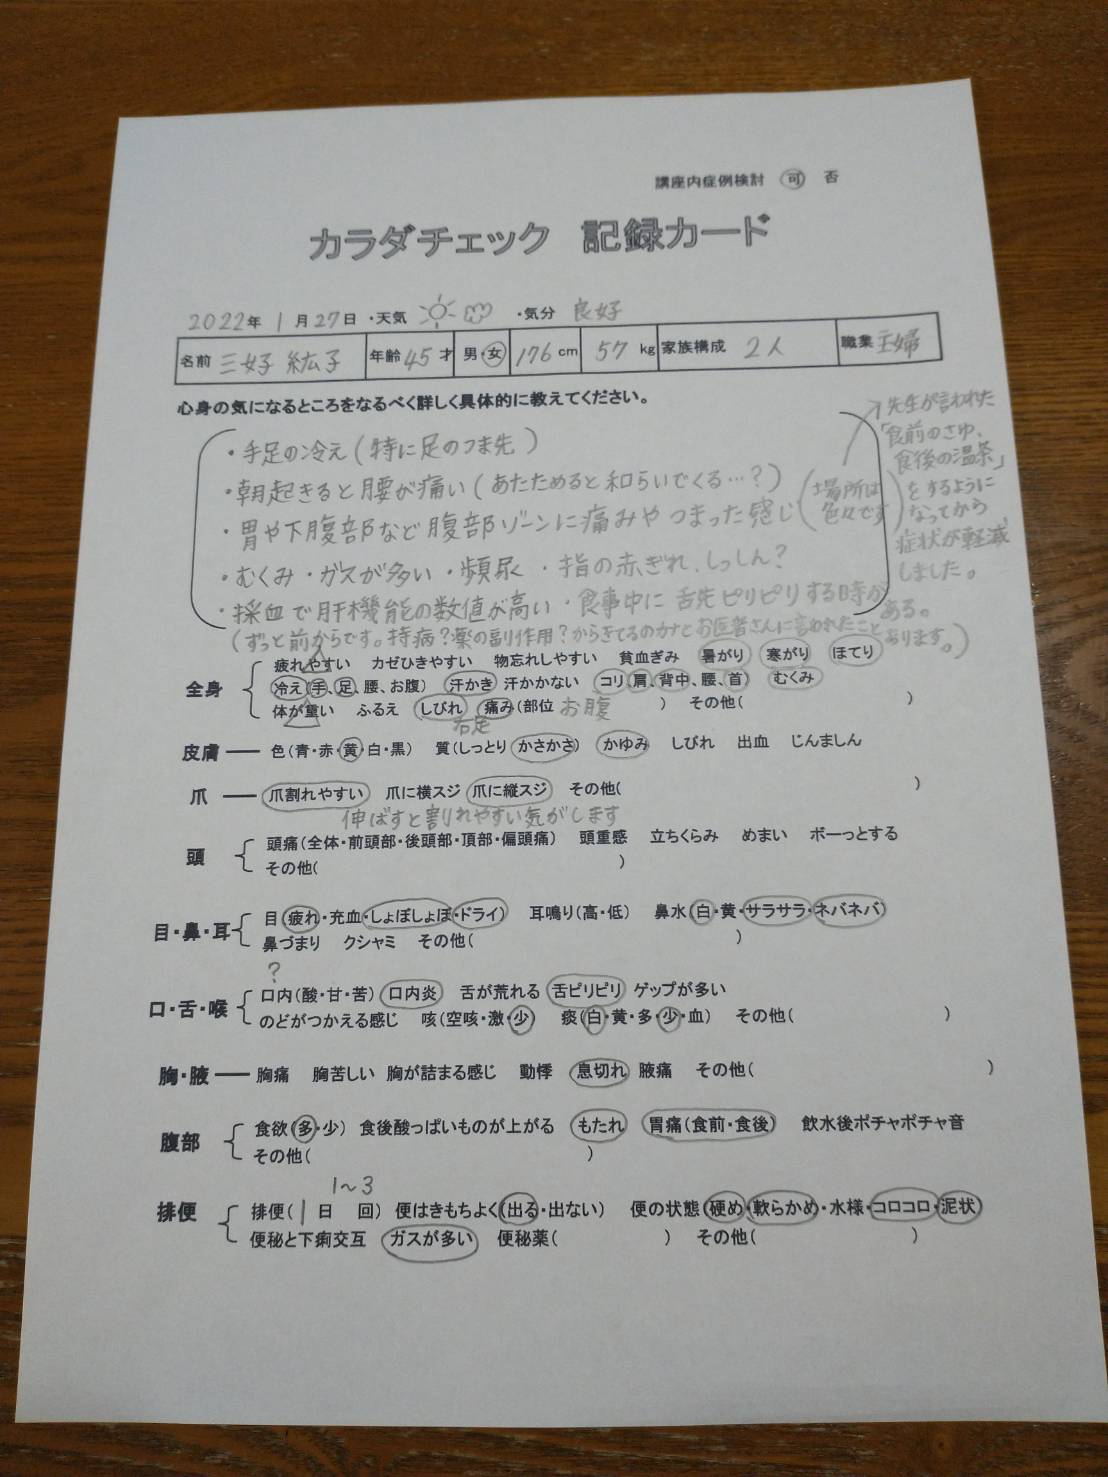 講座内症例検討 可 否
カラダチェック 記録カード
2022年 1月27日 ・天気 ・気分 良好
名前 三好 紘子 年齢 45才 男・女 176cm 57kg 家族構成 2人 職業 主婦
心身の気になるところをなるべく詳しく具体的に教えてください。
・手足の冷え(特に足のつま先)
・朝起きると腰が痛い(あたためると和らいでくる…?)
・胃や下腹部など腹部ゾーンに痛みやつまった感じ(場所は色々です)
→先生が言われた
「食前のさゆ、
食後の温茶」
をするように
なってから
症状が軽減
しました。
・むくみ・ガスが多い・頻尿・指の赤ぎれ、しっしん?
・採血で肝機能の数値が高い・食事中に舌先ピリピリする時がある。
(ずっと前からです。持病?薬の副作用?からきてるのかなとお医者さんに言われたことあります。)
全身
疲れやすい カゼひきやすい 物忘れしやすい 貧血ぎみ 暑がり 寒がり ほてり
冷え(手、足、腰、お腹) 汗かき 汗かかない コリ(肩、背中、腰、首) むくみ
体が重い ふるえ しびれ 痛み(部位 お腹 ) その他( )
右足
皮膚 色(青・赤・黄・白・黒) 質(しっとり・かさかさ) かゆみ しびれ 出血 じんましん
爪 爪割れやすい 爪に横スジ 爪に縦スジ その他( )
伸ばすと割れやすい気がします
頭
頭痛(全体・前頭部・後頭部・頂部・偏頭痛) 頭重感 立ちくらみ めまい ボーっとする
その他( )
目・鼻・耳
目(疲れ・充血・しょぼしょぼ・ドライ) 耳鳴り(高・低) 鼻水(白・黄・サラサラ・ネバネバ)
鼻づまり クシャミ その他( )
?
口・舌・喉
口内(酸・甘・苦) 口内炎 舌が荒れる 舌ピリピリ ゲップが多い
のどがつかえる感じ 咳(空咳・激・少) 痰(白・黄・多・少・血) その他( )
胸・腋 胸痛 胸苦しい 胸が詰まる感じ 動悸 息切れ 腋痛 その他( )
腹部
食欲(多・少) 食後酸っぱいものが上がる もたれ 胃痛(食前・食後) 飲水後ポチャポチャ音
その他( )
1~3
排便
排便( 1日 回) 便はきもちよく(出る・出ない) 便の状態(硬め・軟らかめ・水様・コロコロ・泥状)
便秘と下痢交互 ガスが多い 便秘薬( ) その他( )